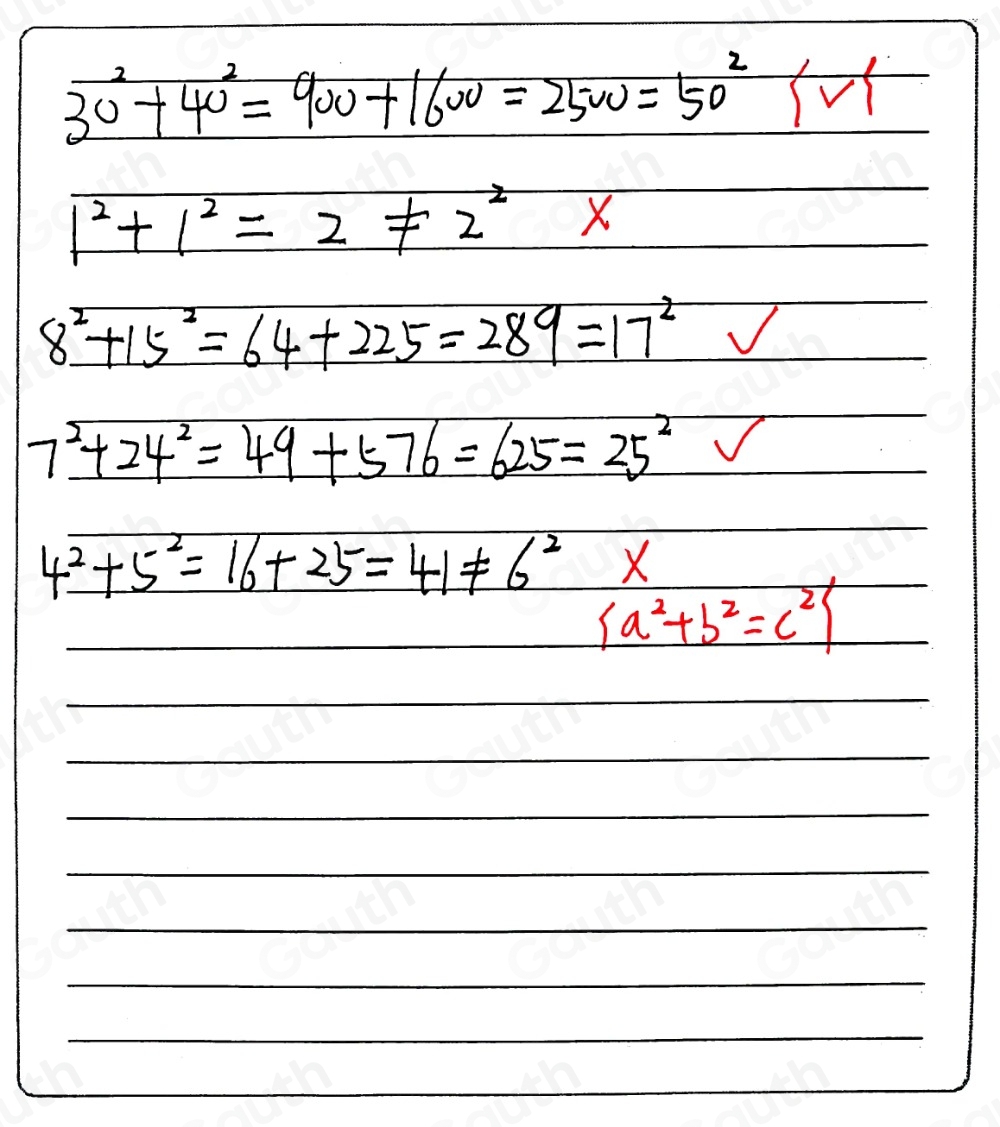 30² + 40² = 900 + 1600 = 2500 = 50² {✓{
1² + 1² = 2 ≠ 2² X
8² + 15² = 64 + 225 = 289 = 17² ✓
7² + 24² = 49 + 576 = 625 = 25² ✓
4² + 5² = 16 + 25 = 41 ≠ 6² X
{a² + b² = c²{